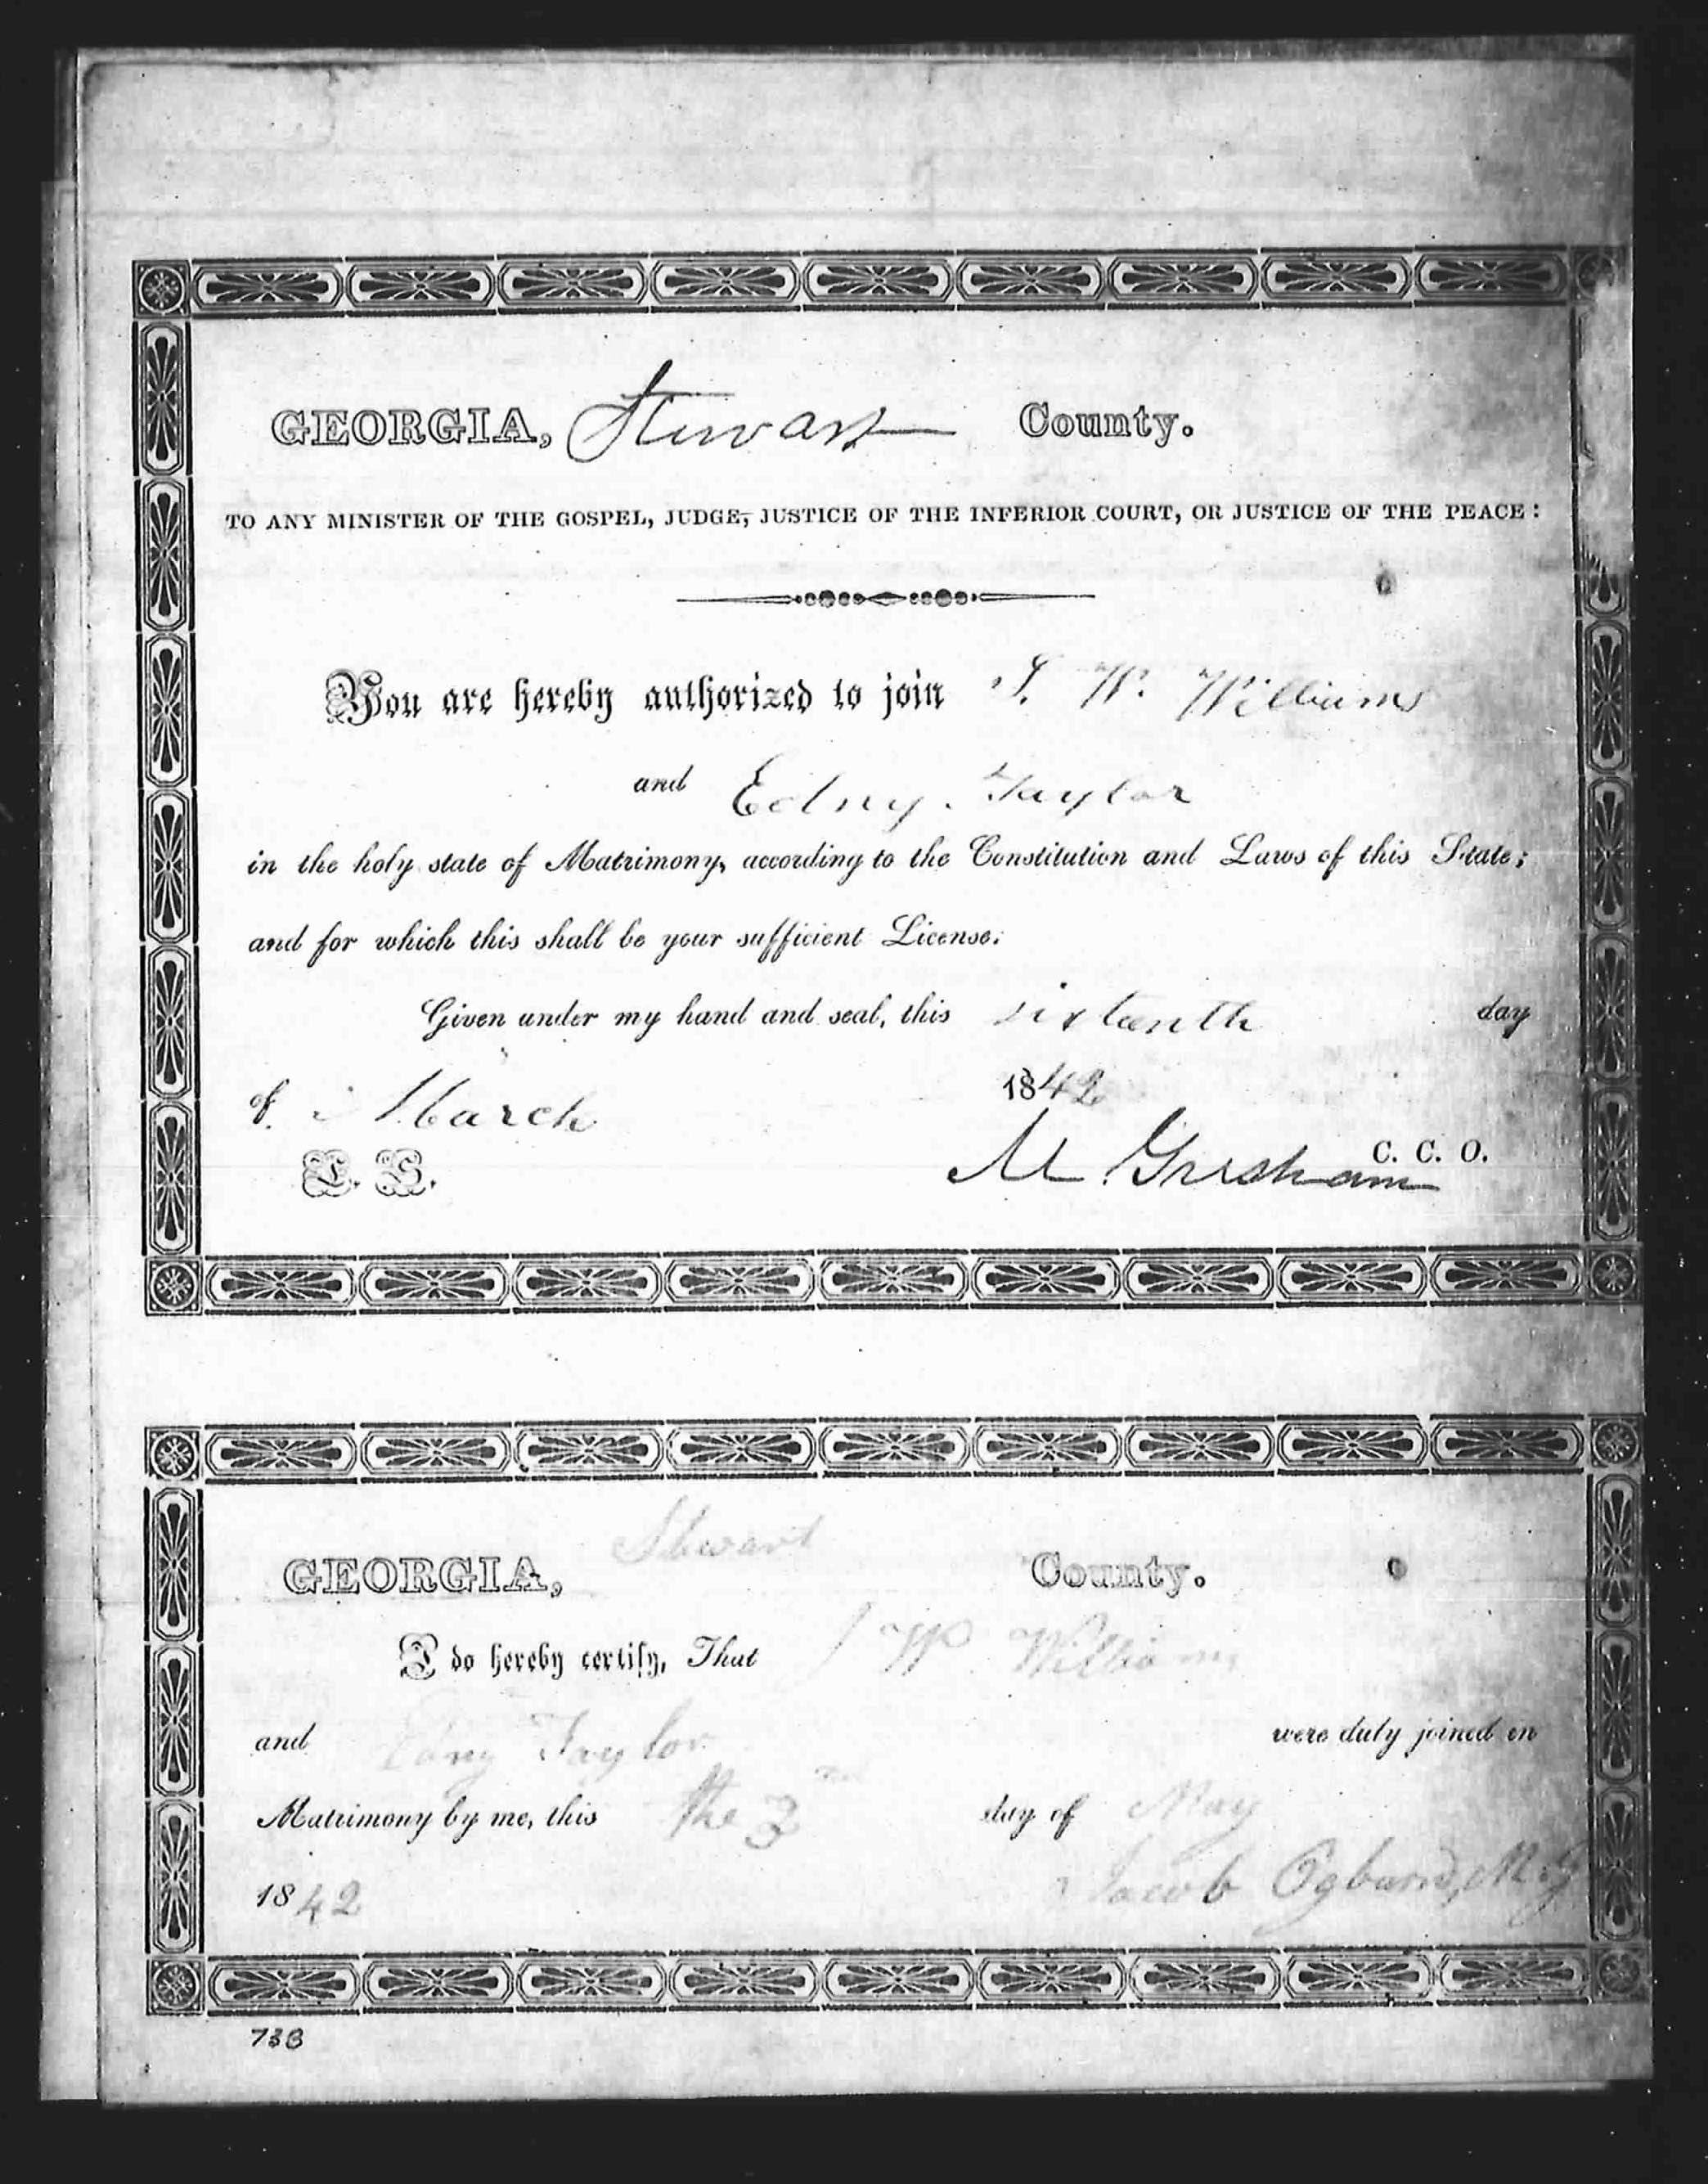 GEORGIA, Stewart County.
TO ANY MINISTER OF THE GOSPEL, JUDGE, JUSTICE OF THE INFERIOR COURT, OR JUSTICE OF THE PEACE:
You are hereby authorized to join W. Williams
and Edny Taylor
in the holy state of Matrimony, according to the Constitution and Laws of this State;
and for which this shall be your sufficient License.
Given under my hand and seal, this sixteenth day
of March 1842
L. S. M Gresham C. C. O.
GEORGIA, Stewart County.
I do hereby certify, That W Williams
and Edny Taylor were duly joined in
Matrimony by me, this the 3 day of May
1842 Jacob Ogburn, M. G